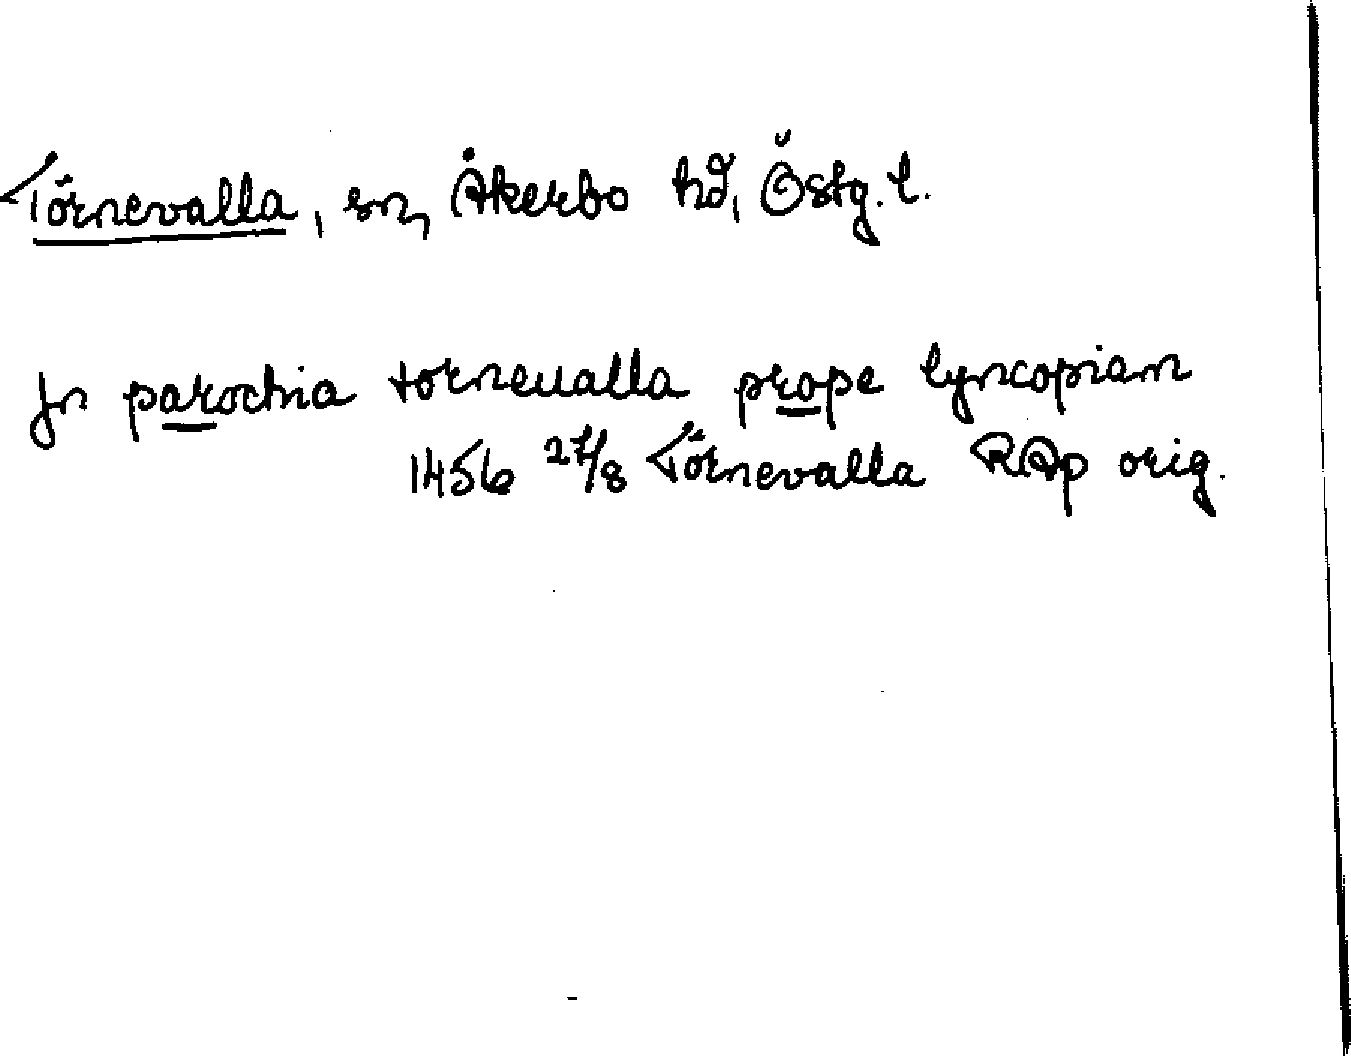 Törnevalla, sn, Åkerbo hd, Östg. l.
Jn parochia torneualla prope lyncopiam
1456 27/8 Törnevalla RAp orig.